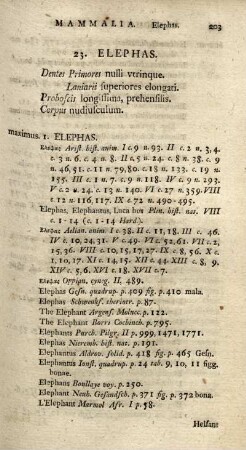 MAMMALIA. Elephas. 203
23. ELEPHAS.
Dentes Primores nulli vtrinque.
Laniarii superiores elongati.
Proboscis longissima, prehensilis.
Corpus nudiusculum.
maximus. 1. ELEPHAS.
Ελεφας Arist. hist. anim I c. 9 n. 93. II c. 2 n. 3, 4.
c. 3 n. 6 c. 4 n. 8 II c. 5 n. 24. c. 8 n. 38. c. 9
n. 46, 51. c. 11 n. 79, 80. c. 18 n. 133. c. 19 n.
155. III c. 1 n. 7 c. 9 n. 118. IV c. 9 n. 109.
V c. 2 n. 23 c. 13 n. 140. VI c. 27 n. 359. VIII
c. 12 n 116, 117. IX c. 72 n. 490-495.
Elephas, Elephantus, Luca bos Plin. hist. nat. VIII
c. 1-14 (c. 1-14 Hard.).
Ελεφας Aelian. anim I c. 38. II c. 11, 18. III c. 46.
IV c. 10, 24, 31. V c. 49. VI c. 51, 61. VII c. 2,
6, 36. VIII c. 10, 15, 17, 27. IX c. 8, 56. X c.
1, 10, 17. XII c. 14. XIV c. 5. XII c. 44. XIII c. 8, 9.
XIV c. 5, 6. XVI c. 18. XVII c. 7.
Ελεφας Oppian. cyneg. II, 489.
Elephas Gesn. quadrup. p. 409 fig. p. 410 mala.
Elephas Schwenkf. theriotr. p. 87.
The Elephant Argens. Molucc. p. 112.
The Elephant Barri Cochinch. p. 795.
Elephants Purch. Pilgr. II p. 999, 1471, 1771.
Elephas Nieremb. hist. nat. p. 191.
Elephantus Aldrov. solid. p. 418 fig. p. 465 Gesn.
Elephantus Ionst. quadrup. p. 24 tab. 9, 10, 11 figg.
bonae.
Elephans Boullaye voy. p. 250.
Elephant Neuh. Gesandsch. p. 371 fig. p. 372 bona.
L'Elephans Marmol Afr. I p. 58.
Helfant